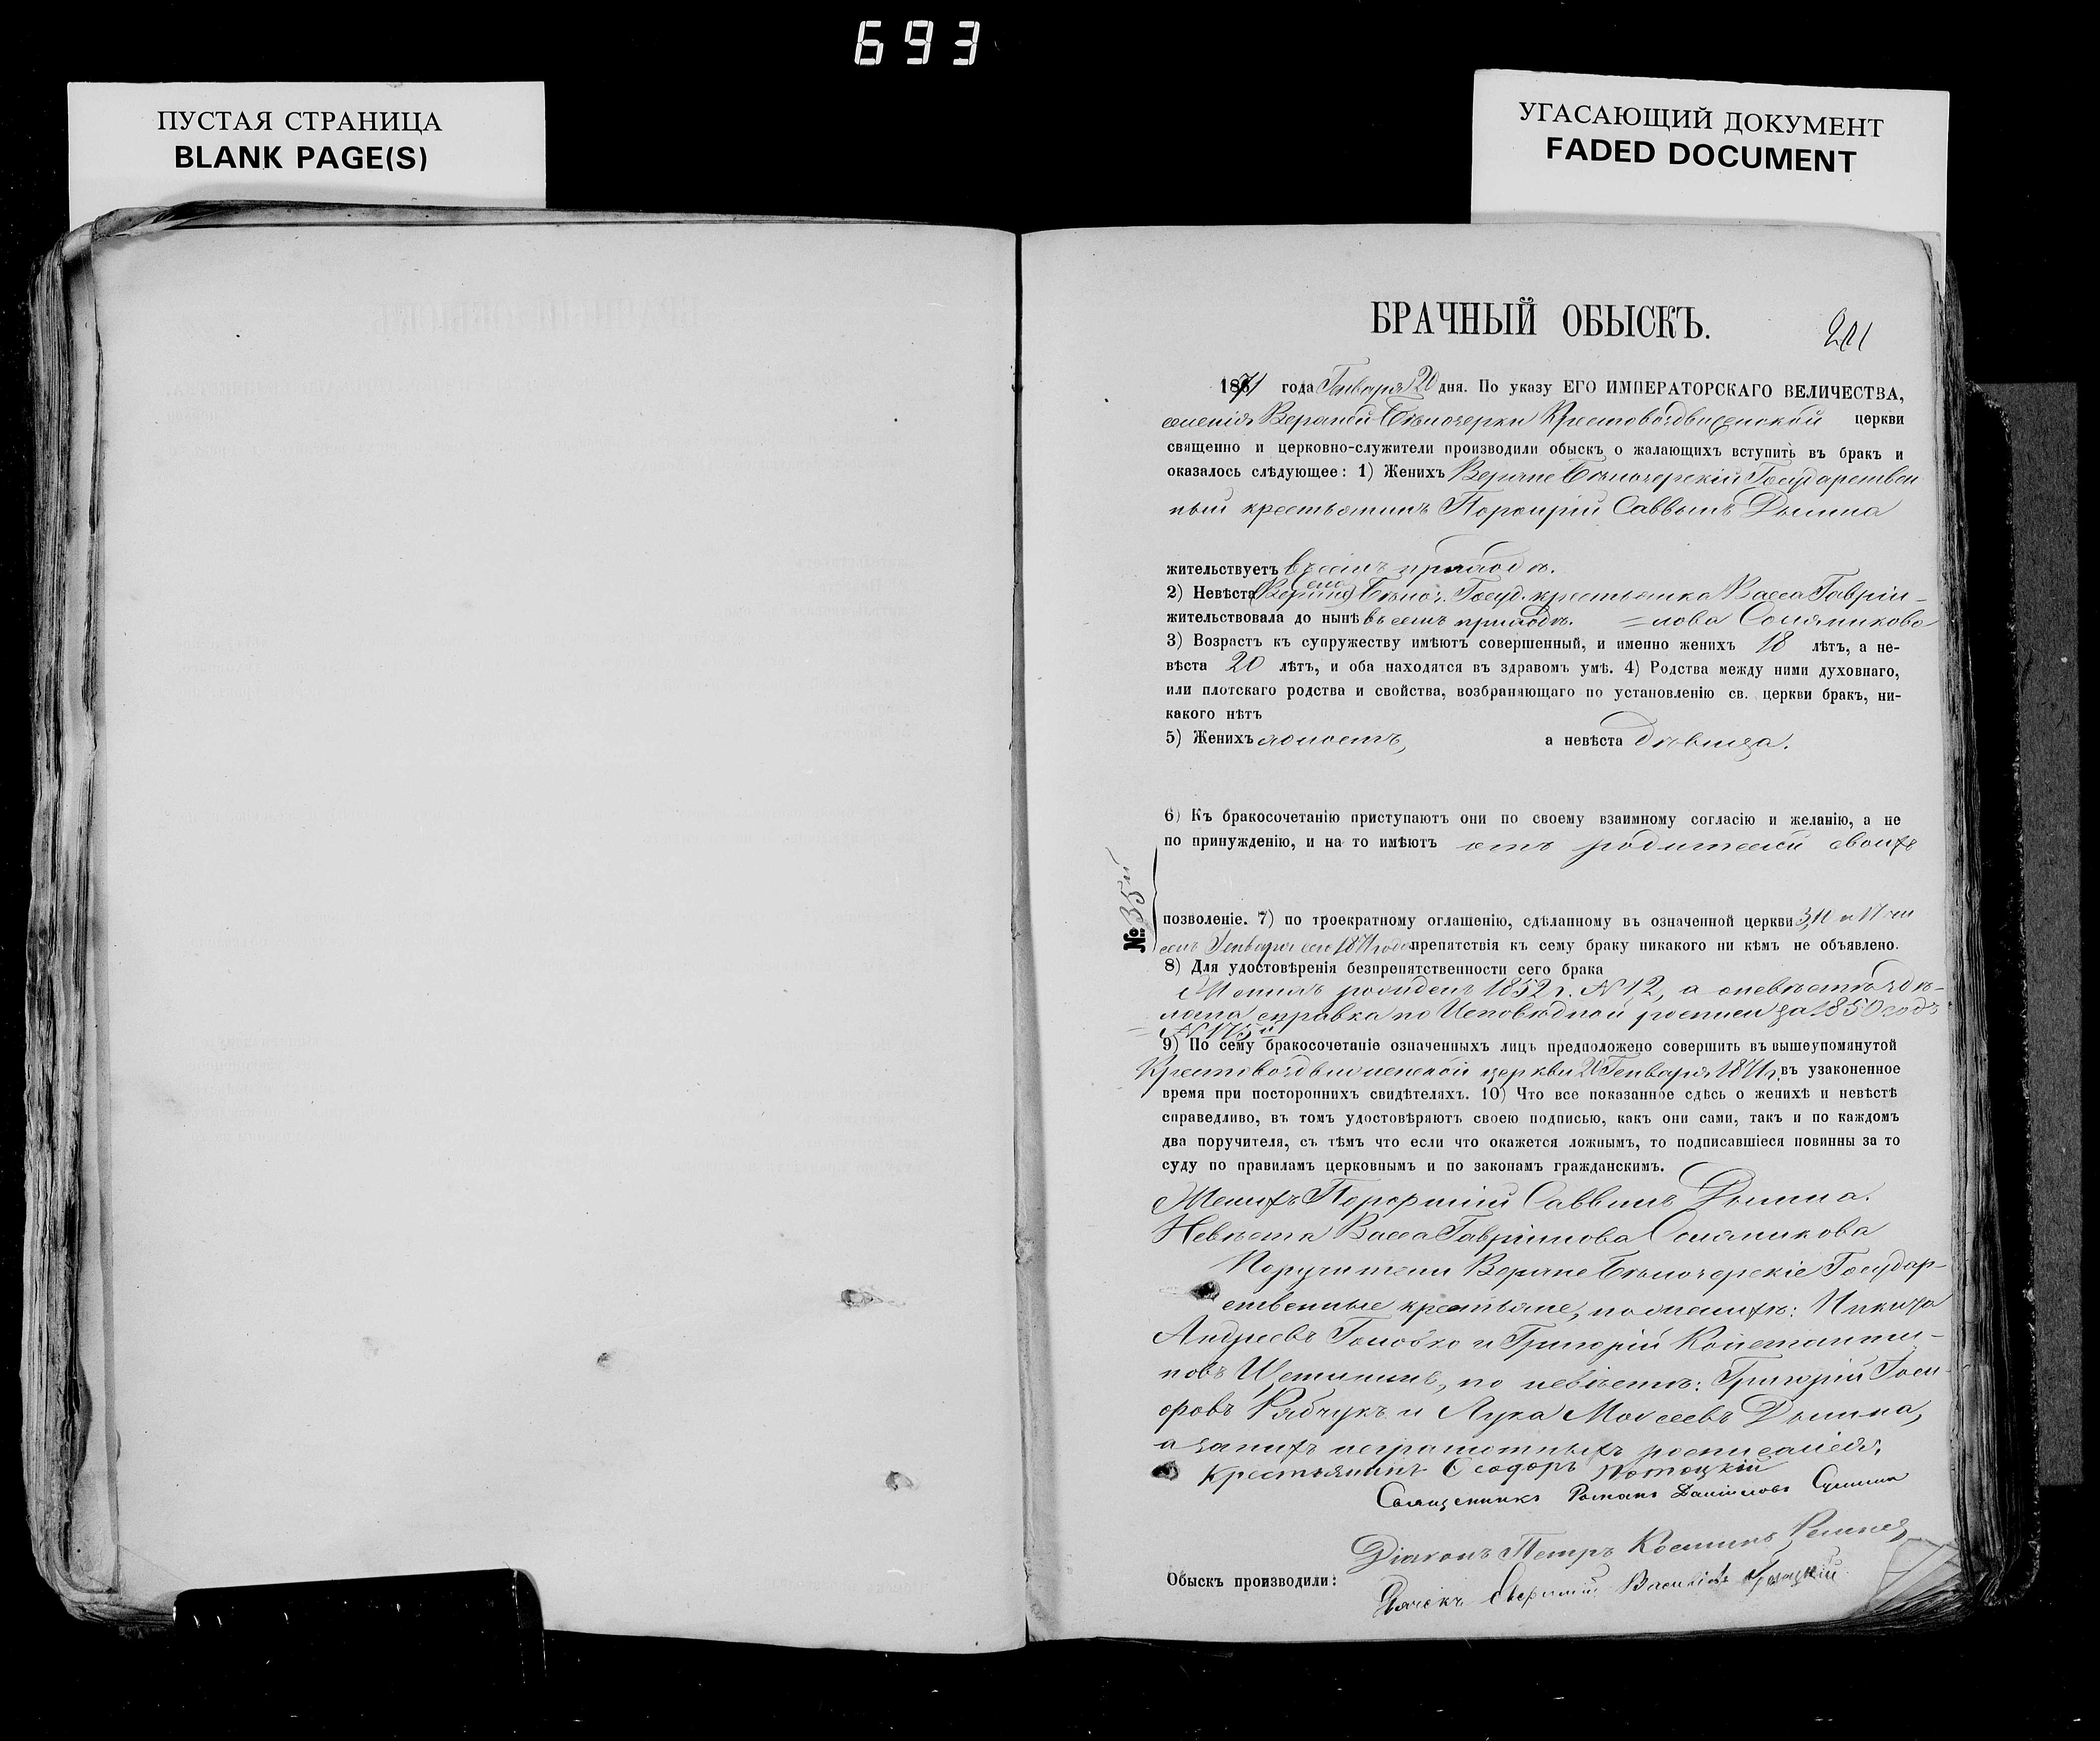 693
ПУСТАЯ СТРАНИЦА
BLANK PAGE(S)
УГАСАЮЩИЙ ДОКУМЕНТ
FADED DOCUMENT
БРАЧНЫЙ ОБЫСКЪ.
1871 года Генваря 20 дня. По указу ЕГО ИМПЕРАТОРСКАГО ВЕЛИЧЕСТВА,
селенія Верхней Бѣлозерки Крестовоздвиженской церкви
священно и церковно-служители производили обыскъ о жалающихъ вступить въ бракъ и
оказалось слѣдующее: 1) Женихъ Верхне Бѣлозерскій Государствен
ный крестьянинъ Порфирій Саввинъ Дымна
жительствуетъ въ семъ приходѣ.
2) Невѣста Верхне Бѣлоз. Госуд. крестьянка Васса Гавріи-
жительствовала до нынѣ въ семъ приходѣ. =лова Соляникова
3) Возрастъ къ супружеству имѣютъ совершенный, и именно женихъ 18 лѣтъ, а не-
вѣста 20 лѣтъ, и оба находятся въ здравомъ умѣ. 4) Родства между ними духовнаго,
или плотскаго родства и свойства, возбраняющаго по установленію св. церкви бракъ, ни-
какого нѣтъ
5) Женихъ холостъ, а невѣста дѣвица.
6) Къ бракосочетанію приступаютъ они по своему взаимному согласію и желанію, а не
по принужденію, и на то имѣютъ отъ родителей своихъ
№ 35й
позволеніе. 7) по троекратному оглашенію, сдѣланному въ означенной церкви
Генваря сего 1871 года препятствія къ сему браку никакого ни кѣмъ не объявлено.
8) Для удостовѣренія безпрепятственности сего брака
Женихъ рожденъ 1852 г. № 12, а о невѣстѣ сдѣ-
лана справка по Исповѣдной росписи за 1850 годъ
№ 175й
9) По сему бракосочетаніе означенныхъ лицъ предположено совершить въ вышеупомянутой
Крестовоздвиженской церкви Генваря 1871 г. въ узаконенное
время при постороннихъ свидѣтеляхъ. 10) Что все показанное сдѣсь о женихѣ и невѣстѣ
справедливо, въ томъ удостовѣряютъ своею подписью, какъ они сами, такъ и по каждомъ
два поручителя, съ тѣмъ что если что окажется ложнымъ, то подписавшіеся повинны за то
суду по правиламъ церковнымъ и по законамъ гражданскимъ.
Женихъ Порфирій Саввинъ Дымна.
Невѣста Васса Гавріилова Соляникова
Поручители Верхне Бѣлозерскіе Государ-
ственные крестьяне, по женихѣ: Никита
Андреевъ Головко и Григорій Константи-
новъ Щетининъ, по невѣстѣ: Григорій Іоси-
фовъ Рябчукъ и Лука Моисеевъ Дымна,
а за нихъ неграмотныхъ росписался
крестьянинъ Ѳеодоръ Потоцкій
Священникъ Романъ Даніиловъ
Діаконъ Петръ Косминъ
Обыскъ производили:
Дьячекъ